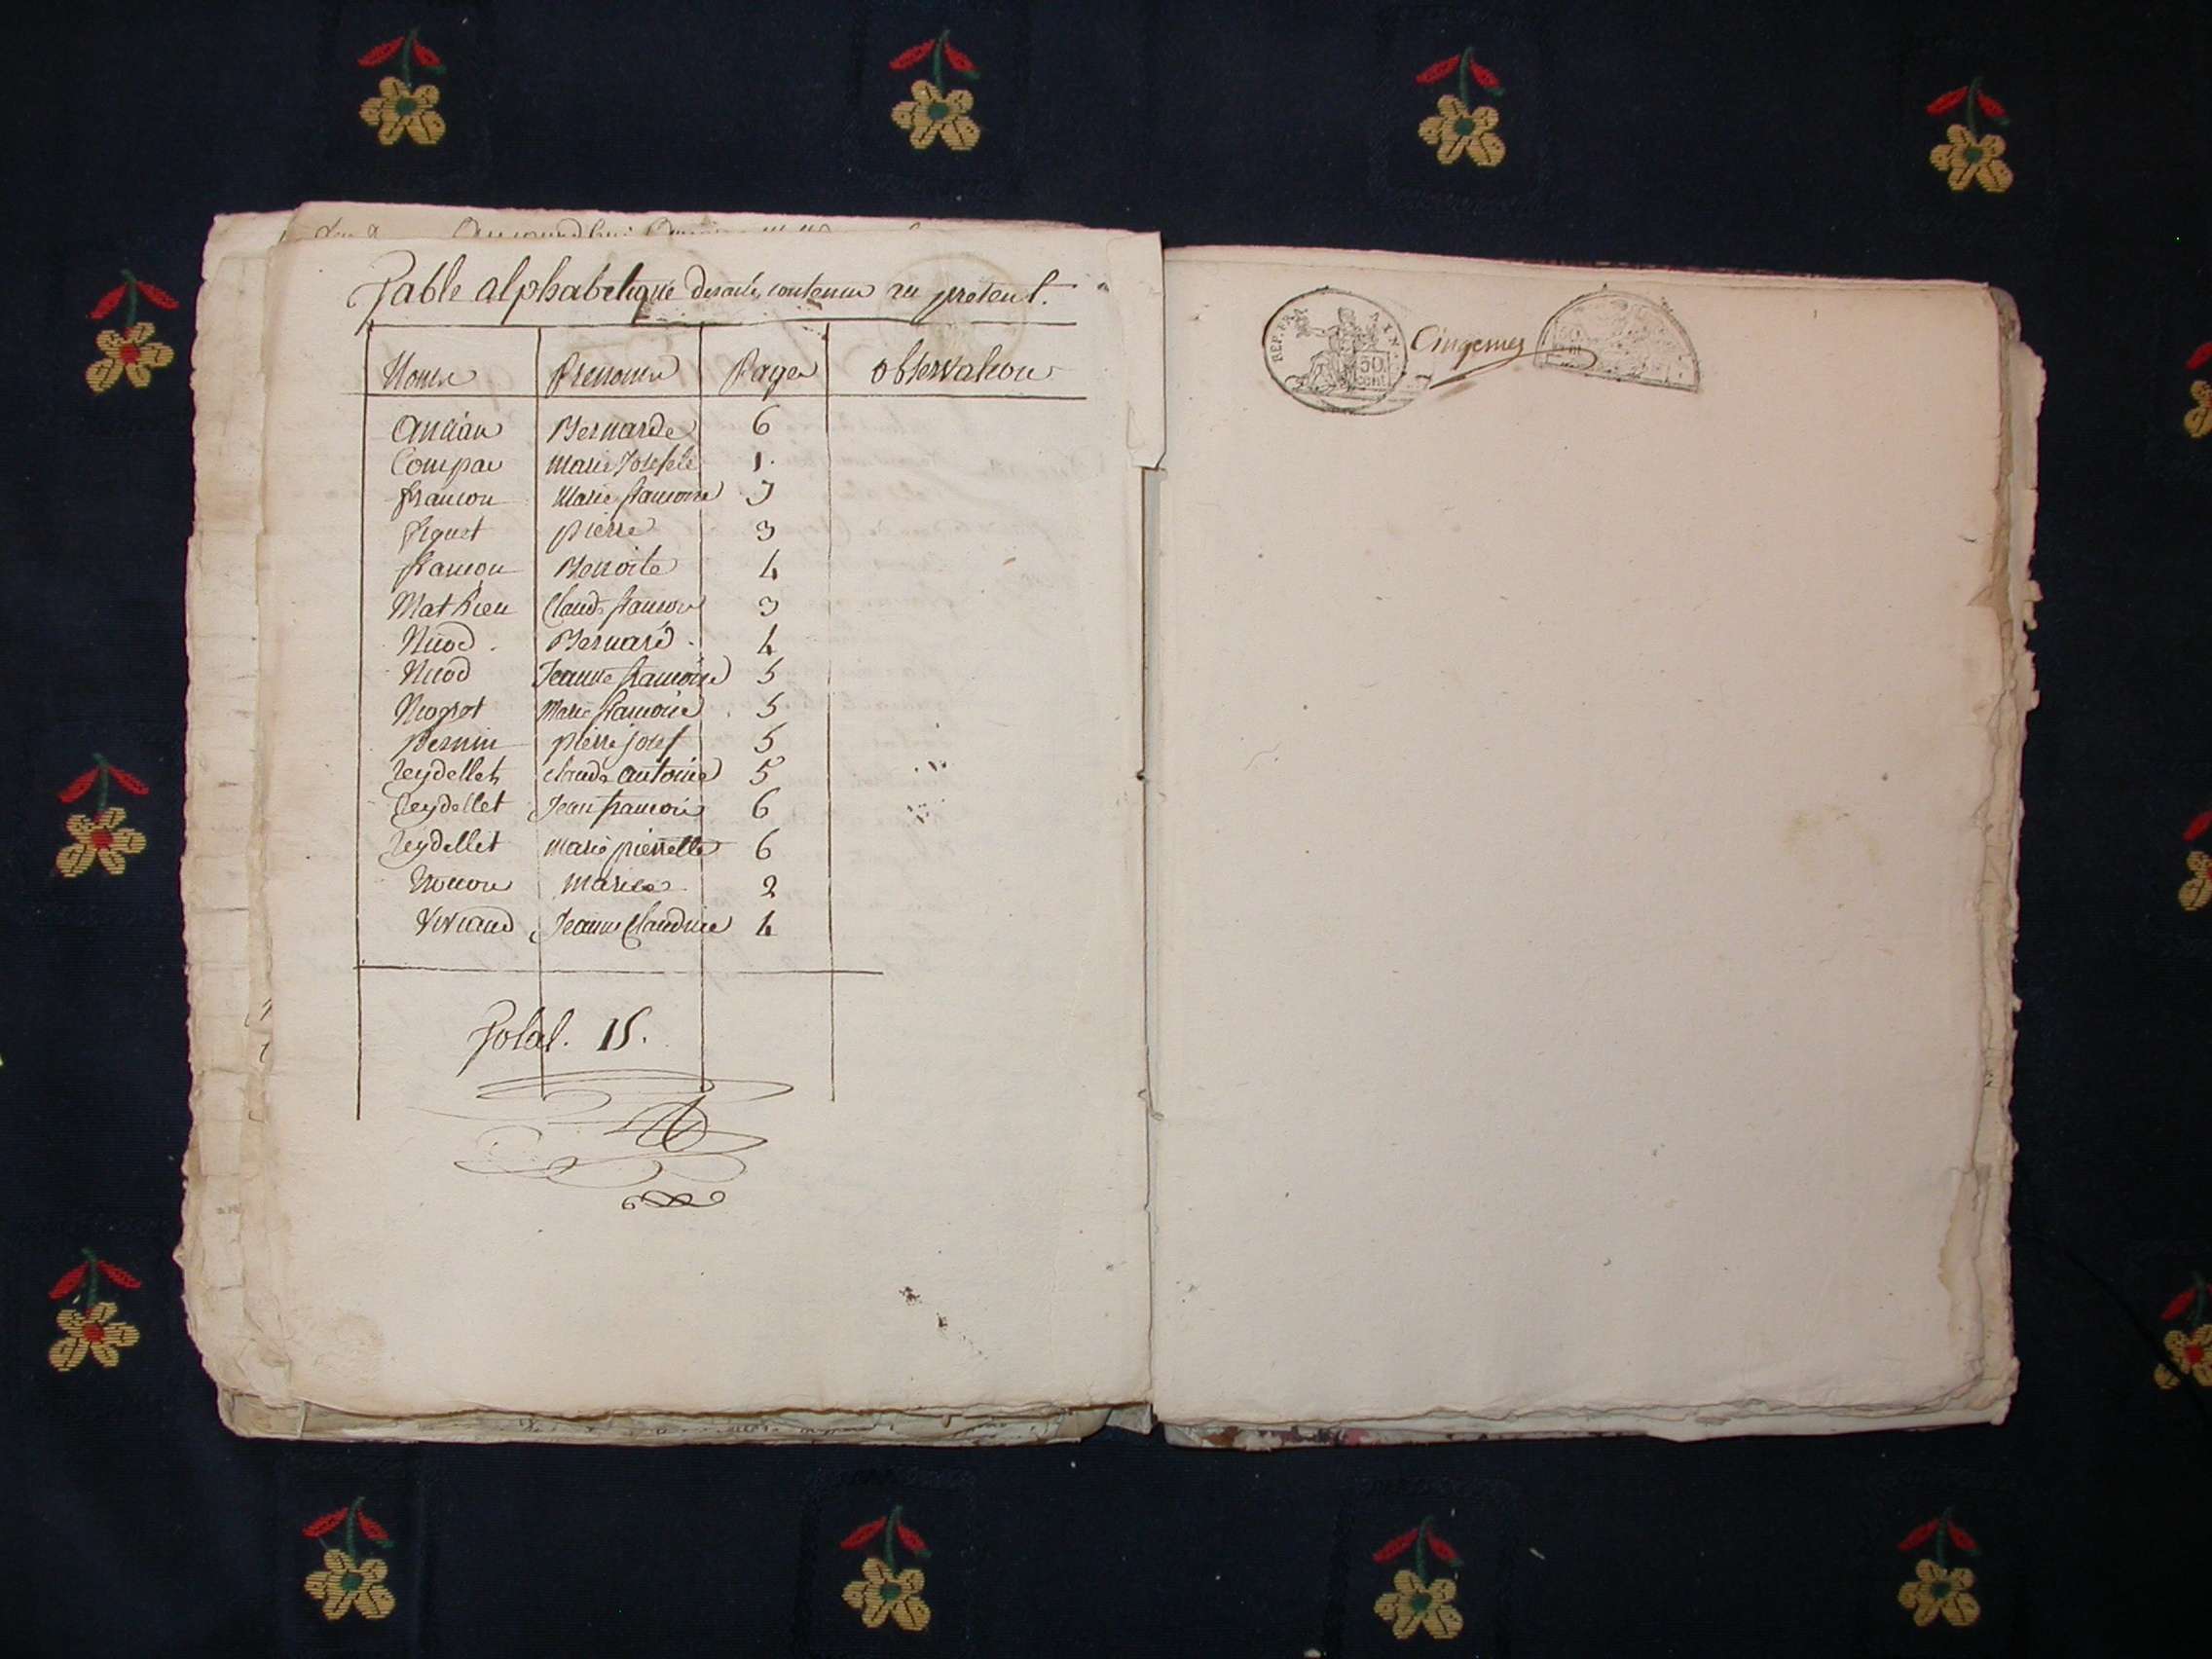 Table alphabetique des actes contenus au present.
Noms Prenoms Pages observations
Ancian Bernarde 6
Compar Marie Josefete 1.
francon Marie francoise 3
figuet pierre 3
francon Benoite 4
Mathieu Claude francois 3
Nicod. Bernard. 4
Nicod Jeanne francoise 5
Nogret Marie francoise 5
Pernin pierre josef 5
Reydellet claude antoine 5
Reydellet Jean francois 6
Reydellet marie pierrette 6
marie 2
Viviand Jeanne Claudine 4
Total. 15.
REP. FRA 50 cent